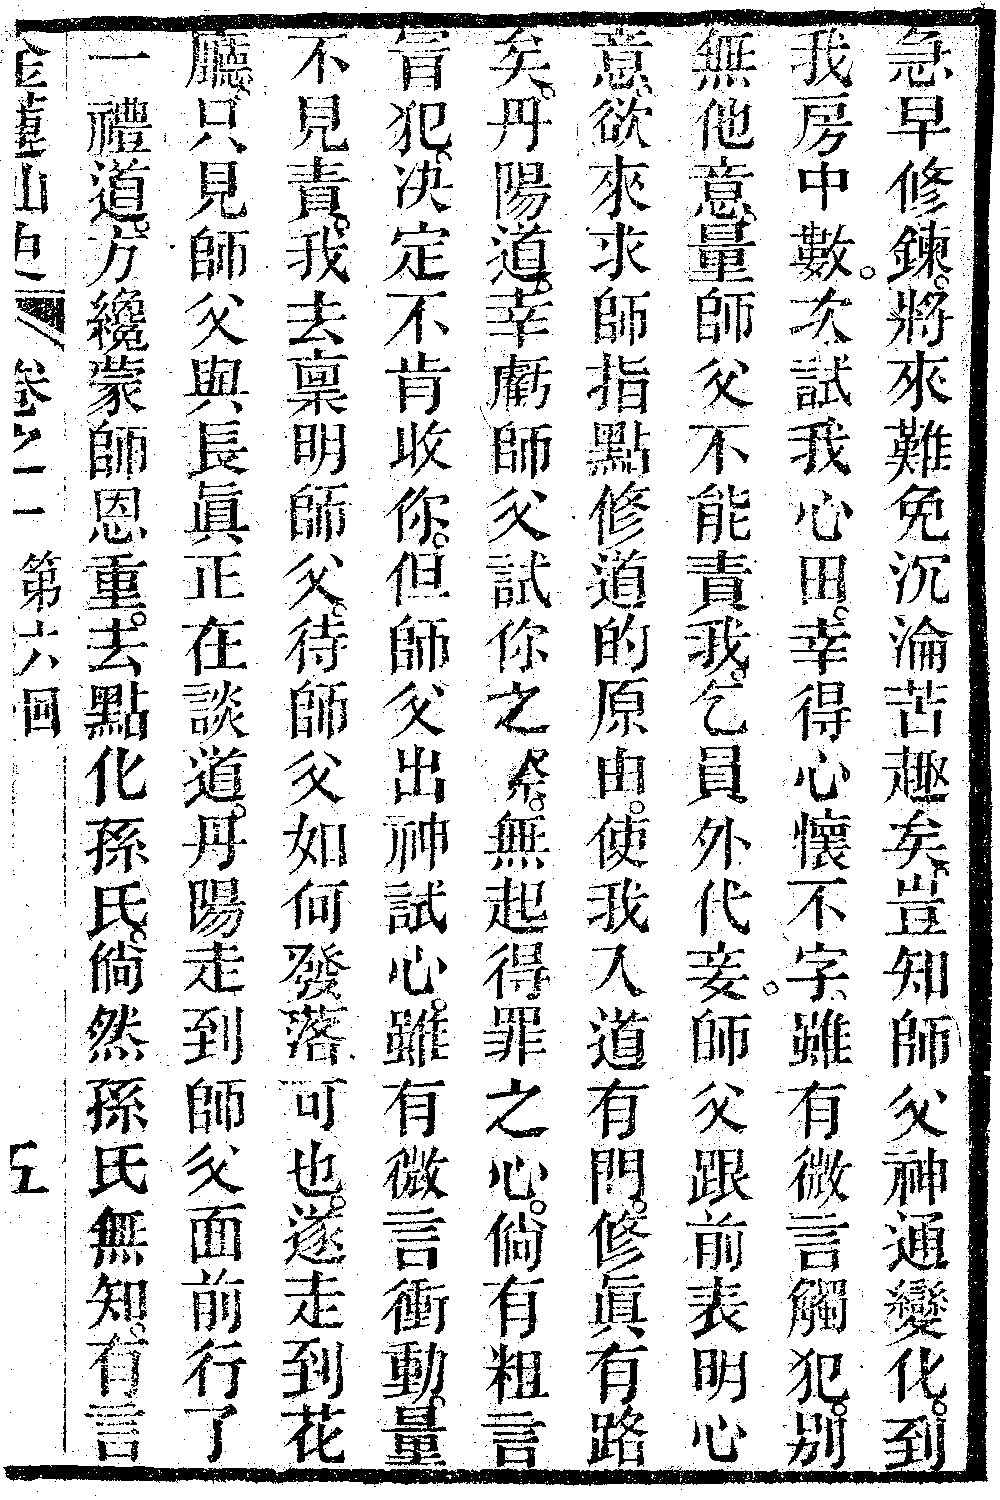 急早修鍊。將來難免沉淪苦趣矣。豈知師父神通變化。到
我房中數次。試我心田。幸得心懷不字。雖有微言觸犯。別
無他意。量師父不能責我。乞員外代妾。師父跟前表明心
意。欲來求師指點修道的原由。使我入道有門。修眞有路
矣。丹陽道。幸虧師父試你之。無起得罪之心。倘有粗言
冒犯。决定不肯收你。但師父出神試心。雖有微言衝動。量
不見責。我去禀明師父。待師父如何發落可也。遂走到花
廳。只見師父與長眞正在談道。丹陽走到師父面前行了
一禮道。方纔蒙師恩重。去點化孫氏。倘然孫氏無知。有言
卷之一 第六回